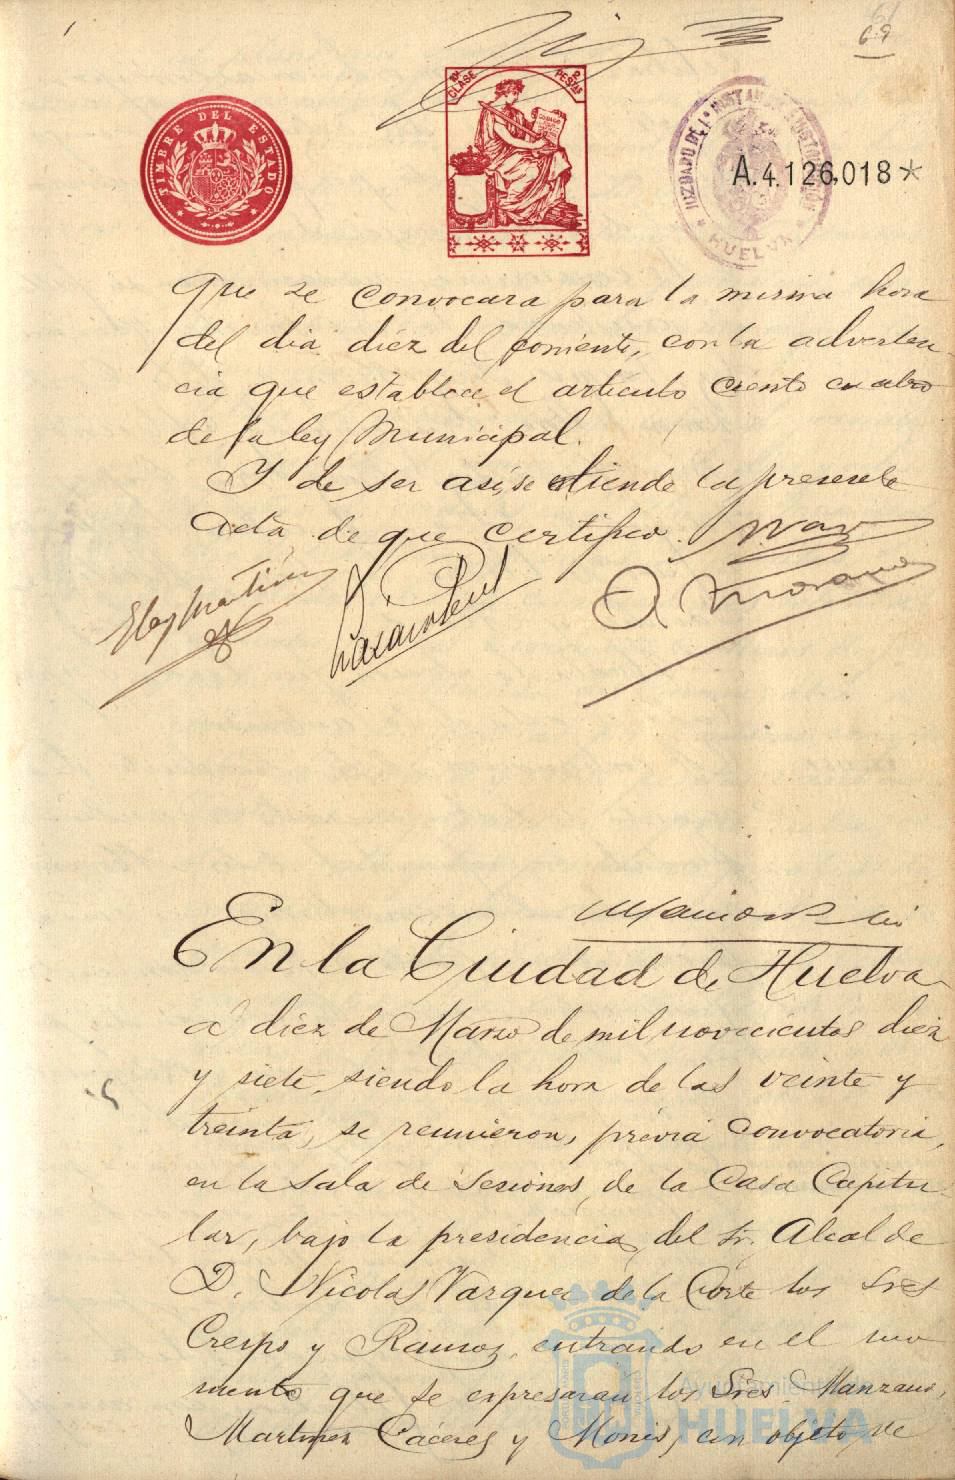 69
TIMBRE DEL ESTADO
10ª CLASE 2 PESTAS
JUZGADO DE 1ª INSTANCIA
HUELVA
A.4.126,018*
que se convocara para la misma hora
del dia diéz del corriente, con la adverten-
cia que establece el artículo ciento cuatro
de la ley Municipal.
Y de ser así, se estiende la presente
acta de que certifico.
Eloy Martín
A. Moreno
En la Ciudad de Huelva
á diéz de Marzo de mil novecientos diez
y siete, siendo la hora de las veinte y
treinta, se reunieron, prévia convocatoria,
en la Sala de Sesiones de la Casa Capitu-
lar, bajo la presidencia del Sr. Alcalde
D. Nicolas Vazquez de la Corte los Sres
Crespo y Ramos, entrando en el mo
mento que se expresarán los Sres Manzano,
Martinez Cáceres y Monis, con objeto de
Ayuntamiento de
HUELVA